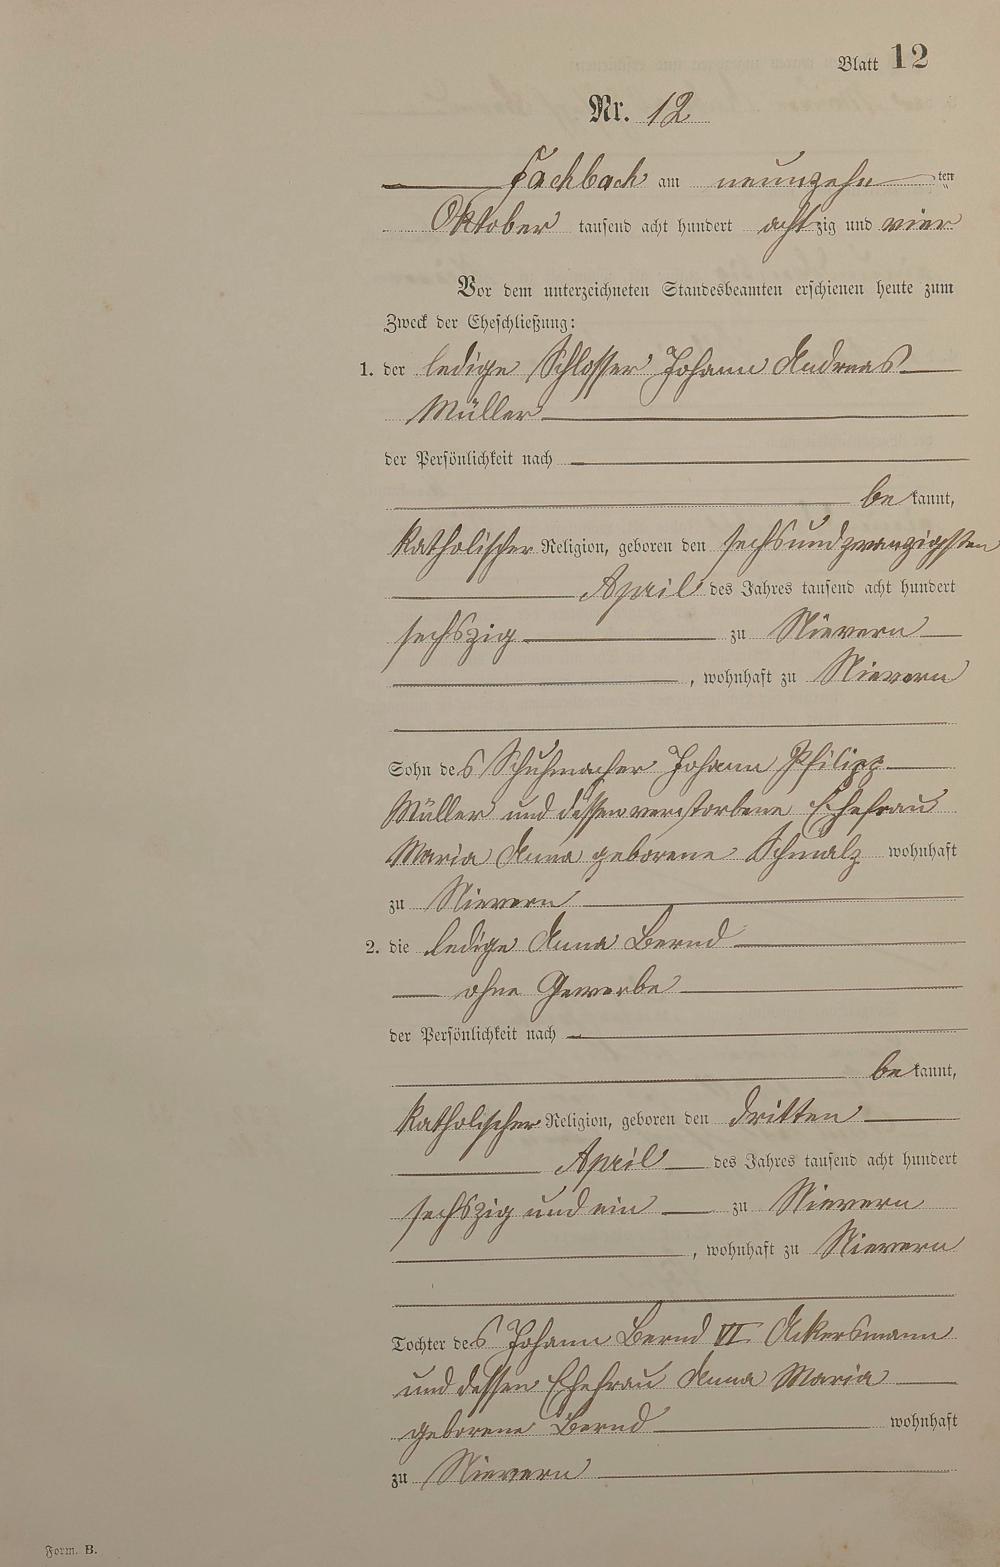 Blatt 12
Nr. 12
Fachbach am neunzehnten
Oktober tausend acht hundert achtzig und vier
Vor dem unterzeichneten Standesbeamten erschienen heute zum
Zweck der Eheschließung:
1. der ledige Schlosser Johann Andreas
Müller
der Persönlichkeit nach
bekannt,
katholischer Religion, geboren den sechsundzwanzigsten
April des Jahres tausend acht hundert
sechszig zu Nievern
, wohnhaft zu Nievern
Sohn des Schuhmacher Johann Philipp
Müller und dessen verstorbene Ehefrau
Maria Anna geborene Schmalz wohnhaft
zu Nievern
2. die ledige Anna Bernd
ohne Gewerbe
der Persönlichkeit nach
bekannt,
katholischer Religion, geboren den dritten
April des Jahres tausend acht hundert
sechszig und ein zu Nievern
, wohnhaft zu Nievern
Tochter des Johann Bernd VI Ackersmann
und dessen Ehefrau Anna Maria
geborene Bernd wohnhaft
zu Nievern
Form. B.